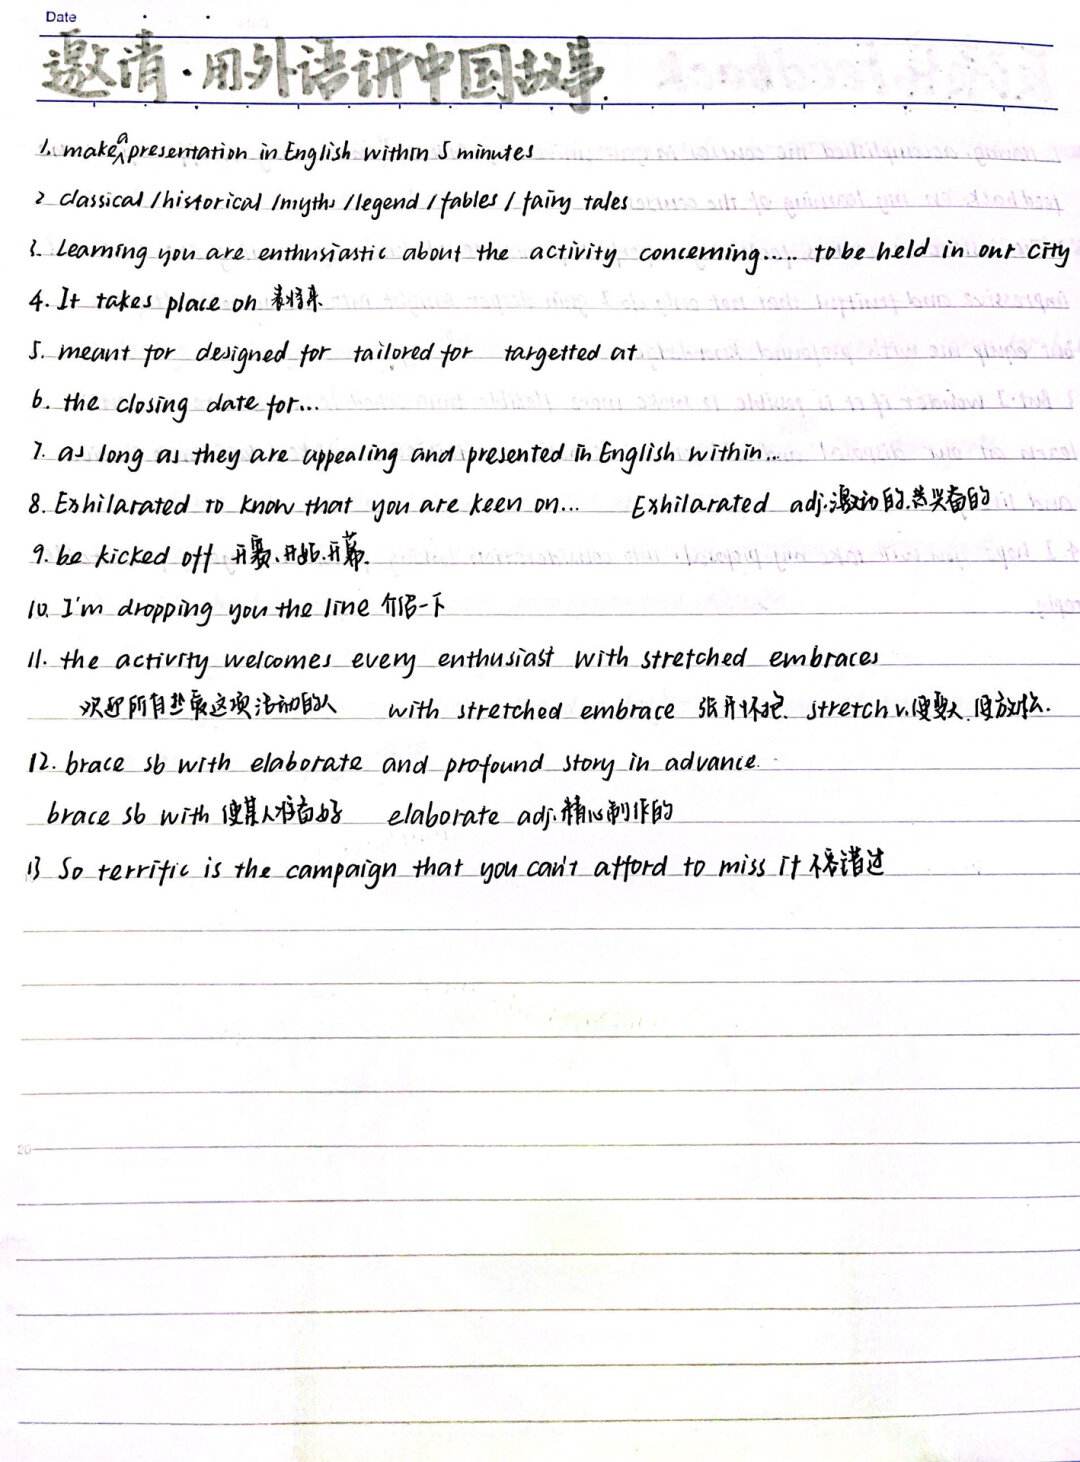 Date
邀请·用外语讲中国故事.
1. make a presentation in English within 5 minutes
2 classical / historical / myths / legend / fables / fairy tales
3. Learning you are enthusiastic about the activity concerning..... to be held in our city
4. It takes place on 表将来
5. meant for designed for tailored for targetted at
6. the closing date for...
7. as long as they are appealing and presented in English within...
8. Exhilarated to know that you are keen on... Exhilarated adj.激动的.高兴奋的
9. be kicked off 开赛.开始.开幕.
10. I'm dropping you the line 介绍一下
11. the activity welcomes every enthusiast with stretched embraces
欢迎所有热衷这项活动的人 with stretched embrace 张开怀抱. stretch v. 使放松.
12. brace sb with elaborate and profound story in advance.
brace sb with 使某人准备好 elaborate adj.精心制作的
13 So terrific is the campaign that you can't afford to miss it 不容错过
20